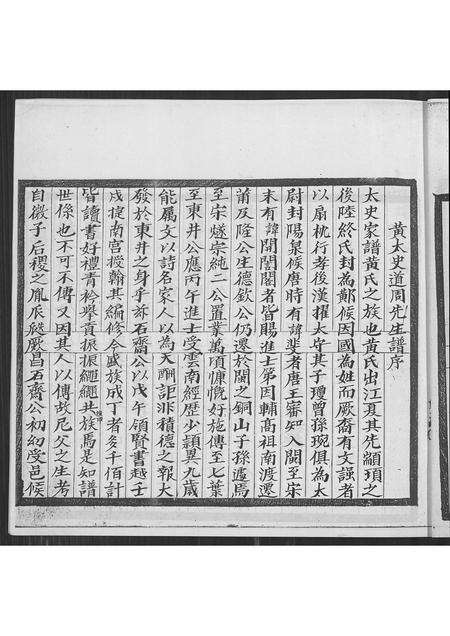 黃太史道周先生譜序
太史家譜黃氏之族也黃氏出江夏其先顓頊之
後陸終氏封為黃侯因國為姓而厥裔有文彊者
以扇枕行孝後漢擢太守其子瓊曾孫琬俱為太
尉封陽泉侯唐時有諱斐者唐王審知入閩至宋
末有諱閭閻者皆賜進士第因輔高祖南渡遷
莆及隆公生德欽公仍遷於閩之銅山子孫遞焉
至宋 宗純二公置業萬頃慷慨好施傳至七葉
至東井公應丙午進士受雲南經歷少頴異九歲
能属文以詩名家人以為天酬詎非積德之報大
發於東井之身乎 石齋公以戊午領賢書越壬
戌捷南宫授翰其編修今盛族成丁者多千佰計
皆讀書好禮青衿舉貢振振繩繩共族焉是知譜
世係也不可不傳又因其人以傳故尼父之生考
自微子后稷之胤 厥昌石齋公初幼受邑侯